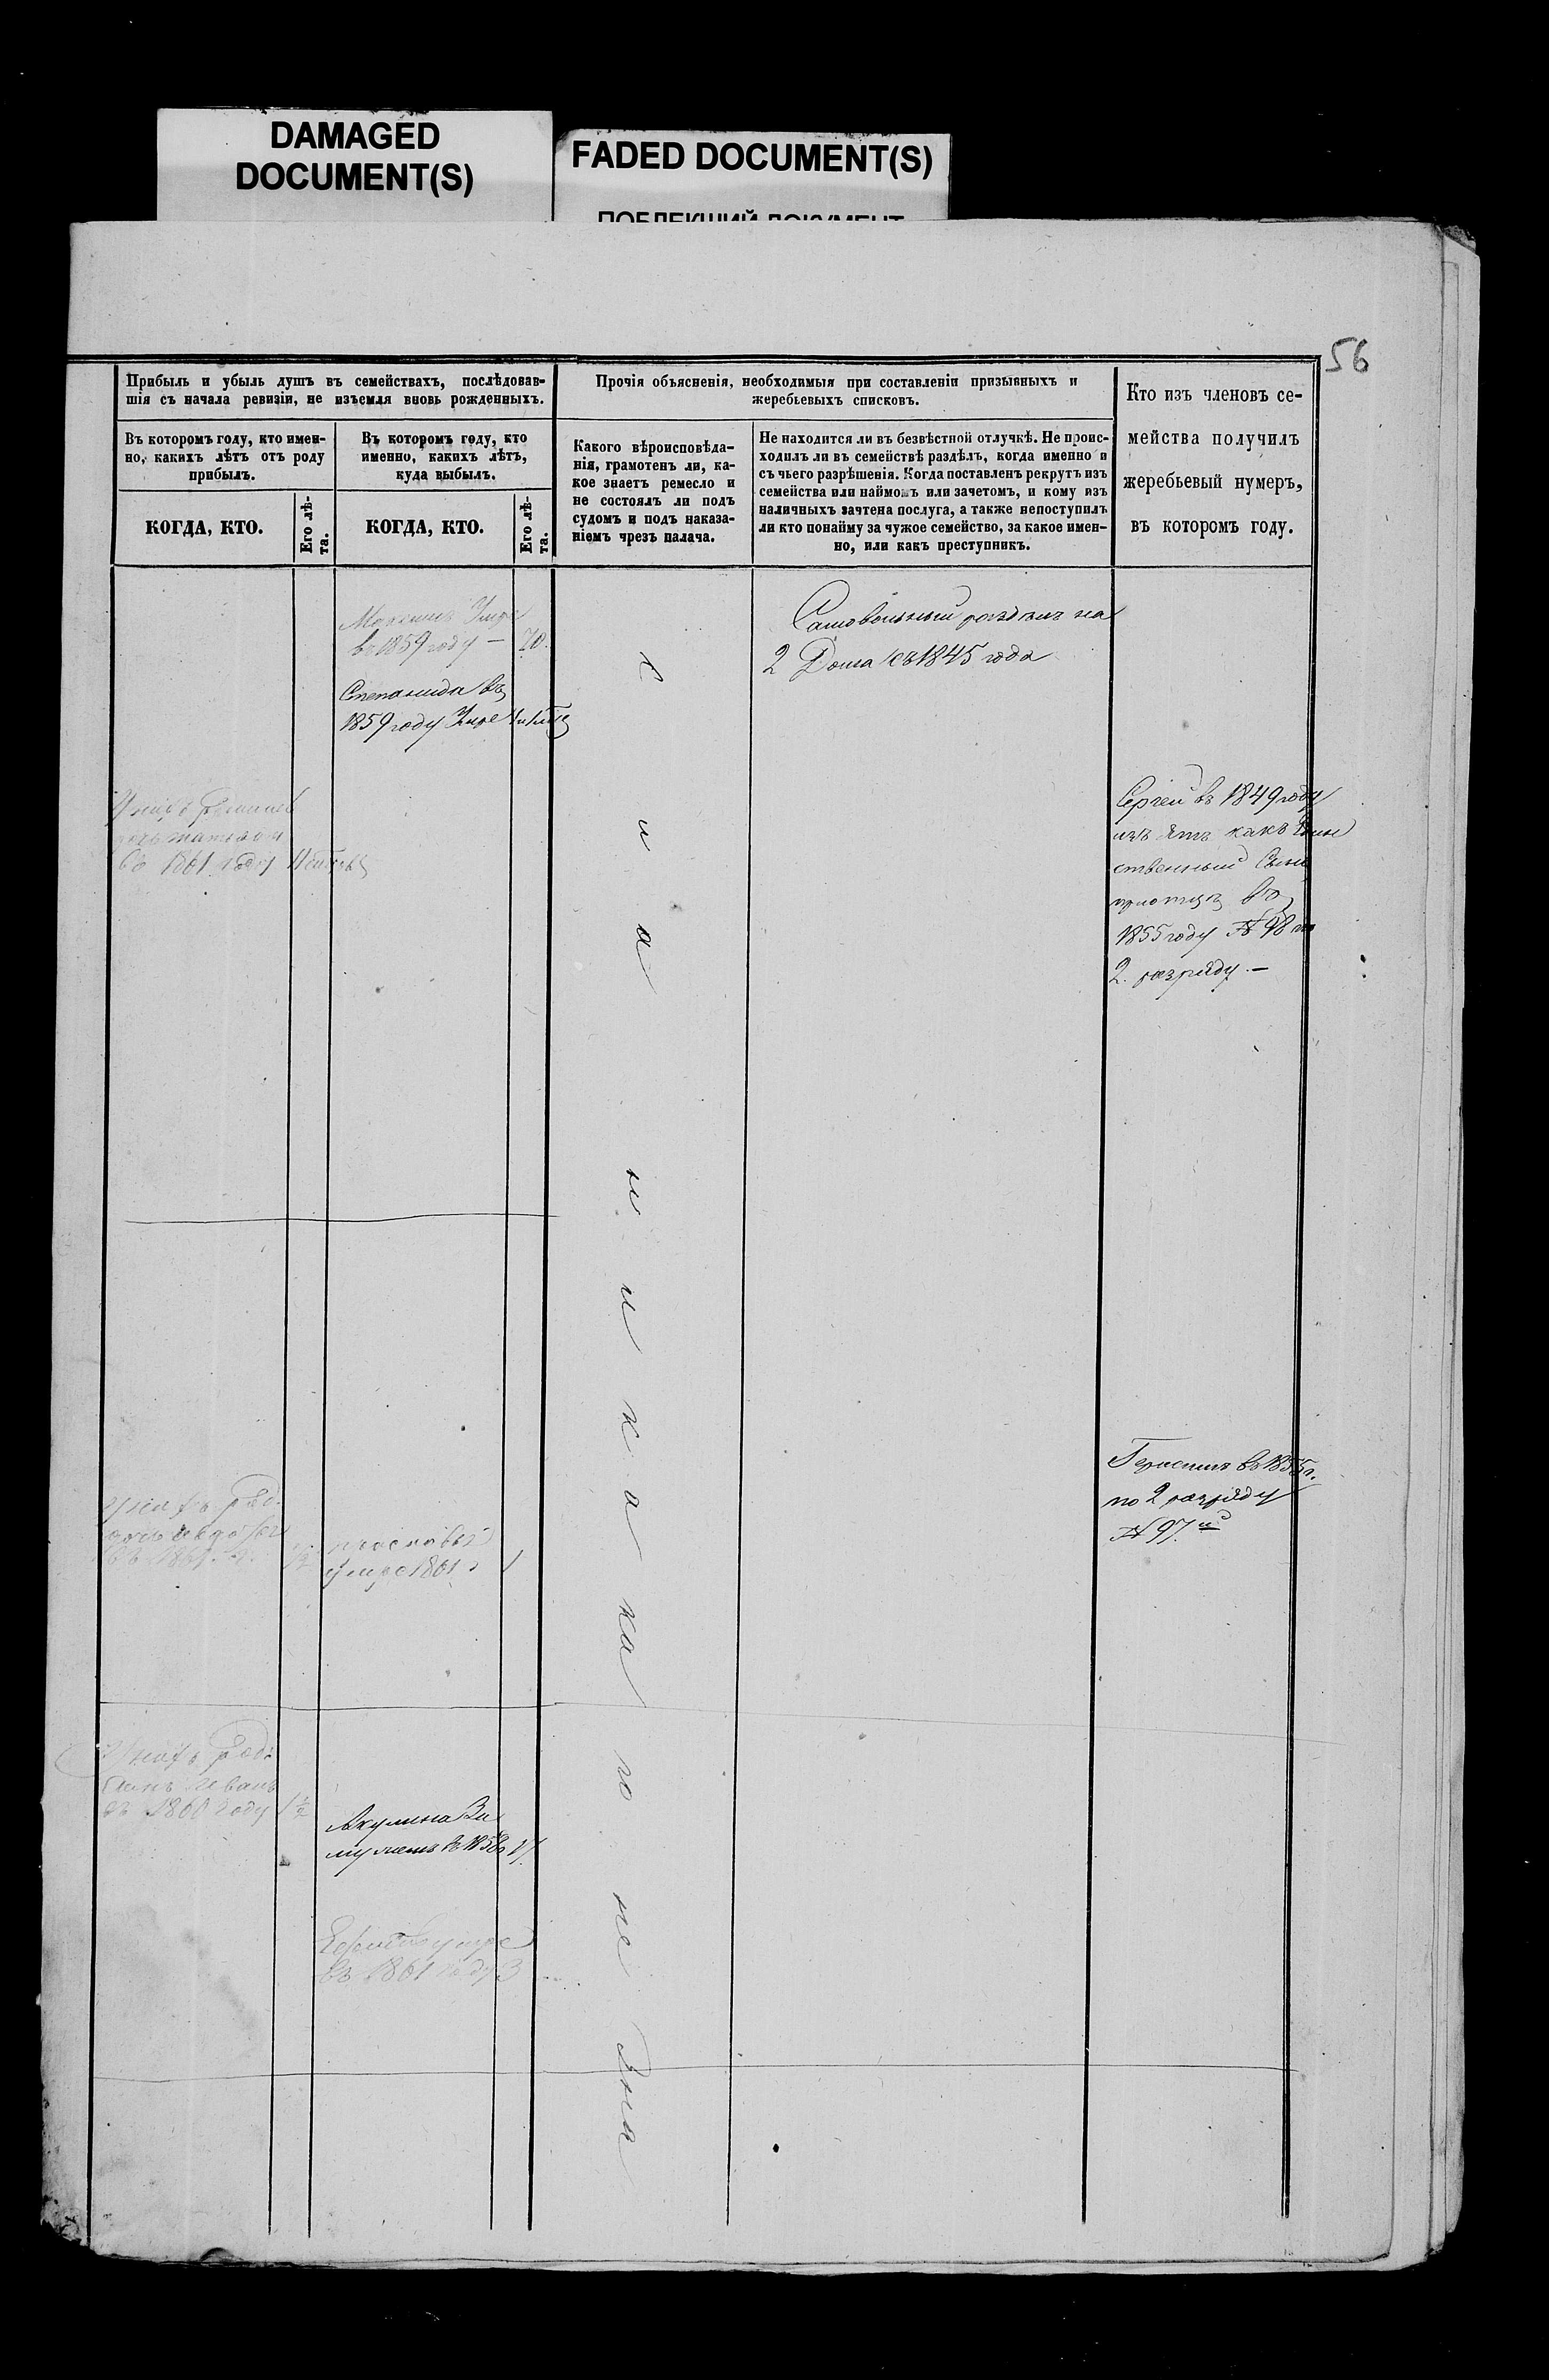 DAMAGED
DOCUMENT(S)
FADED DOCUMENT(S)
ПОБЛЕКШИЙ ДОКУМЕНТ
56
Прибыль и убыль душъ въ семействахъ, послѣдовав-
шія съ начала ревизіи, не изъемля вновь рожденныхъ.
Въ которомъ году, кто имен-
но, какихъ лѣтъ отъ роду
прибылъ.
КОГДА, КТО.
Его лѣ-
та.
Въ которомъ году, кто
именно, какихъ лѣтъ,
куда выбылъ.
КОГДА, КТО.
Его лѣ-
та.
Прочія объясненія, необходимыя при составленіи призывныхъ и
жеребьевыхъ списковъ.
Какого вѣроисповѣда-
нія, грамотенъ ли, ка-
кое знаетъ ремесло и
не состоялъ ли подъ
судомъ и подъ наказа-
ніемъ чрезъ палача.
Не находится ли въ безвѣстной отлучкѣ. Не проис-
ходилъ ли въ семействѣ раздѣлъ, когда именно и
съ чьего разрѣшенія. Когда поставленъ рекрутъ изъ
семейства или наймомъ или зачетомъ, и кому изъ
наличныхъ зачтена послуга, а также непоступилъ
ли кто понайму за чужое семейство, за какое имен-
но, или какъ преступникъ.
Кто изъ членовъ се-
мейства получилъ
жеребьевый нумеръ,
въ которомъ году.
Максимъ Умре
въ 1859 году — 70.
Степанида въ
1859 году Умре
Самовольный раздѣлъ на
2 Дома съ 1845 года
въ 1861 году
Сергей въ 1849 году
изъятъ какъ Един
ственный Сынъ
въ
1855 году № 98 по
2. разряду. —
Герасимъ въ 1855 г.
по 2 разряду
№ 97.й
у нихъ род.
умре 1861 1
у нихъ род.
Сынъ Иванъ
въ 1860 году 1/2
Акулина За
мужемъ въ 1858 17.
умре
въ 1861 году 3
н и к а к а го не зна